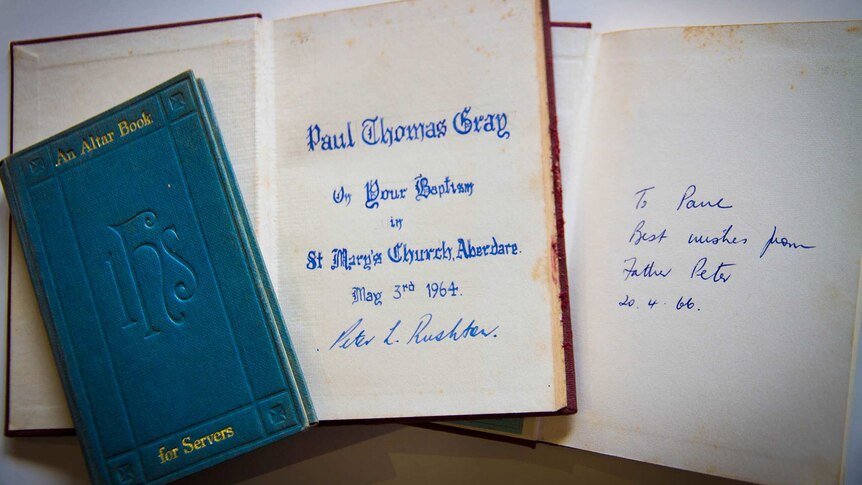 An Altar Book
IHS
for Servers
Paul Thomas Gray
On Your Baptism
in
St Mary's Church, Aberdare.
May 3rd 1964.
Peter L. Rushton.
To Paul
Best wishes from
Father Peter
20.4.66.